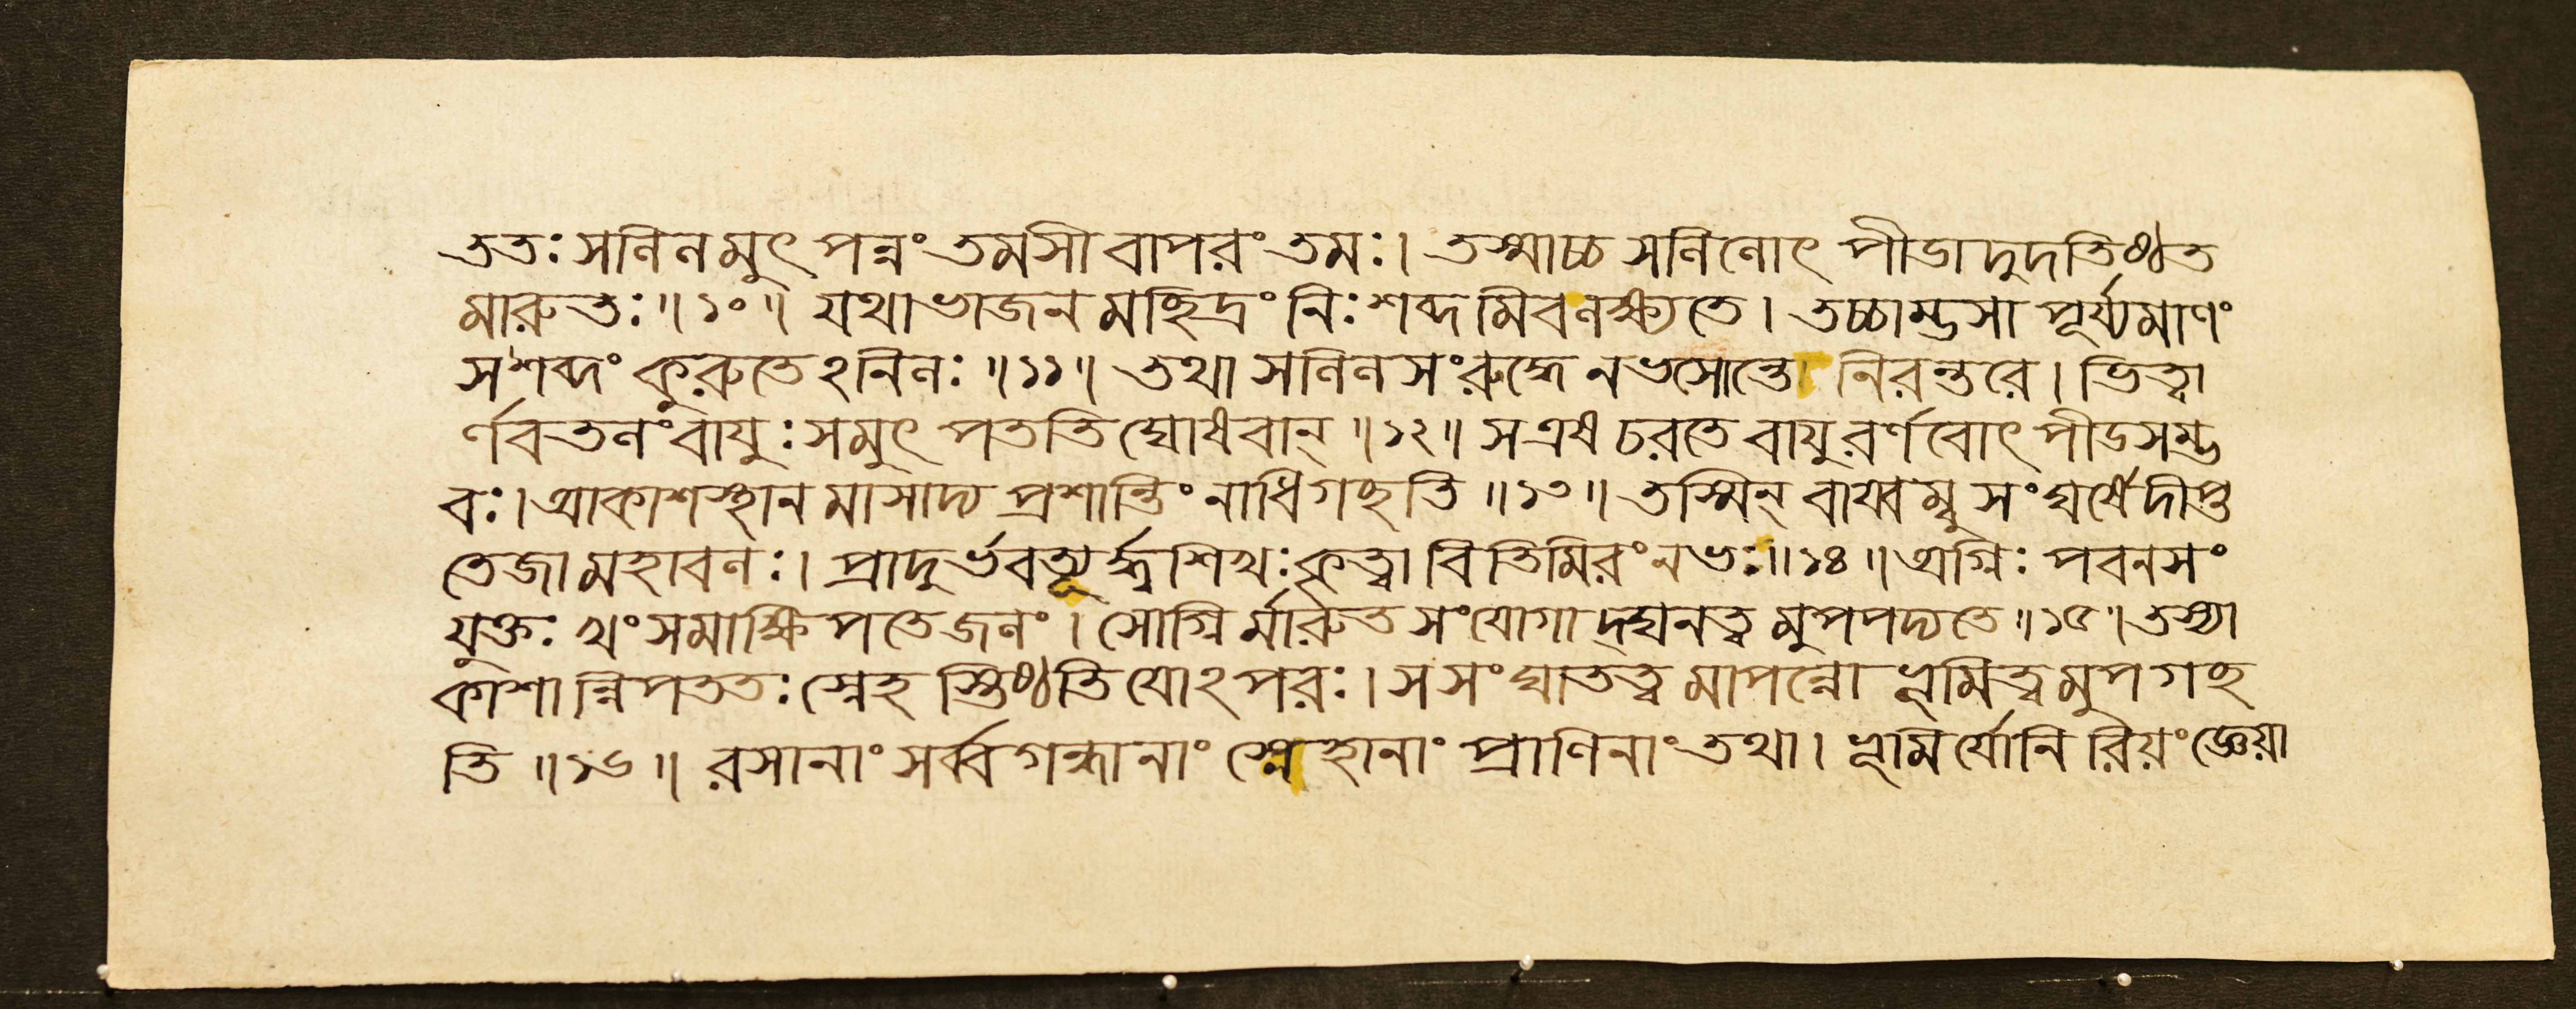 ততঃ সলিলমুৎপন্নং তমসীবাপরং তমঃ। তস্মাচ্চ সলিলোৎপীডাদুদতিষ্ঠত
মারুতঃ॥১০॥ যথা ভাজনমছিদ্রং নিঃশব্দমিব লক্ষ্যতে। তচ্চাম্ভসা পূর্য্যমাণং
সশব্দং কুরুতেঽনিলঃ॥১১॥ তথা সলিলসংরুদ্ধে নভসোন্তে নিরন্তরে। ভিত্বা
র্ণবতলং বায়ুঃ সমুৎপততি ঘোষবান্॥১২॥ স এষ চরতে বায়ুরর্ণবোৎপীডসম্ভ
বঃ। আকাশস্থানমাসাদ্য প্রশান্তিং নাধিগছতি॥১৩॥ তস্মিন্ বায্বম্বুসংঘর্ষে দীপ্ত
তেজা মহাবলঃ। প্রাদুর্ভবত্যূর্দ্ধ্বশিখঃ কৃত্বা বিতিমিরং নভঃ॥১৪॥ অগ্নিঃ পবনসং
যুক্তঃ খং সমাক্ষিপতে জলং। সোগ্নির্মারুতসংযোগাদ্ঘনত্বমুপপদ্যতে॥১৫॥ তস্যা
কাশান্নিপততঃ স্নেহস্তিষ্ঠতি যোঽপরঃ। স সংঘাতত্বমাপন্নো ভূমিত্বমুপগছ
তি॥১৬॥ রসানাং সর্ব্বগন্ধানাং স্নেহানাং প্রাণিনাং তথা। ভূমির্যোনিরিয়ং জ্ঞেয়া